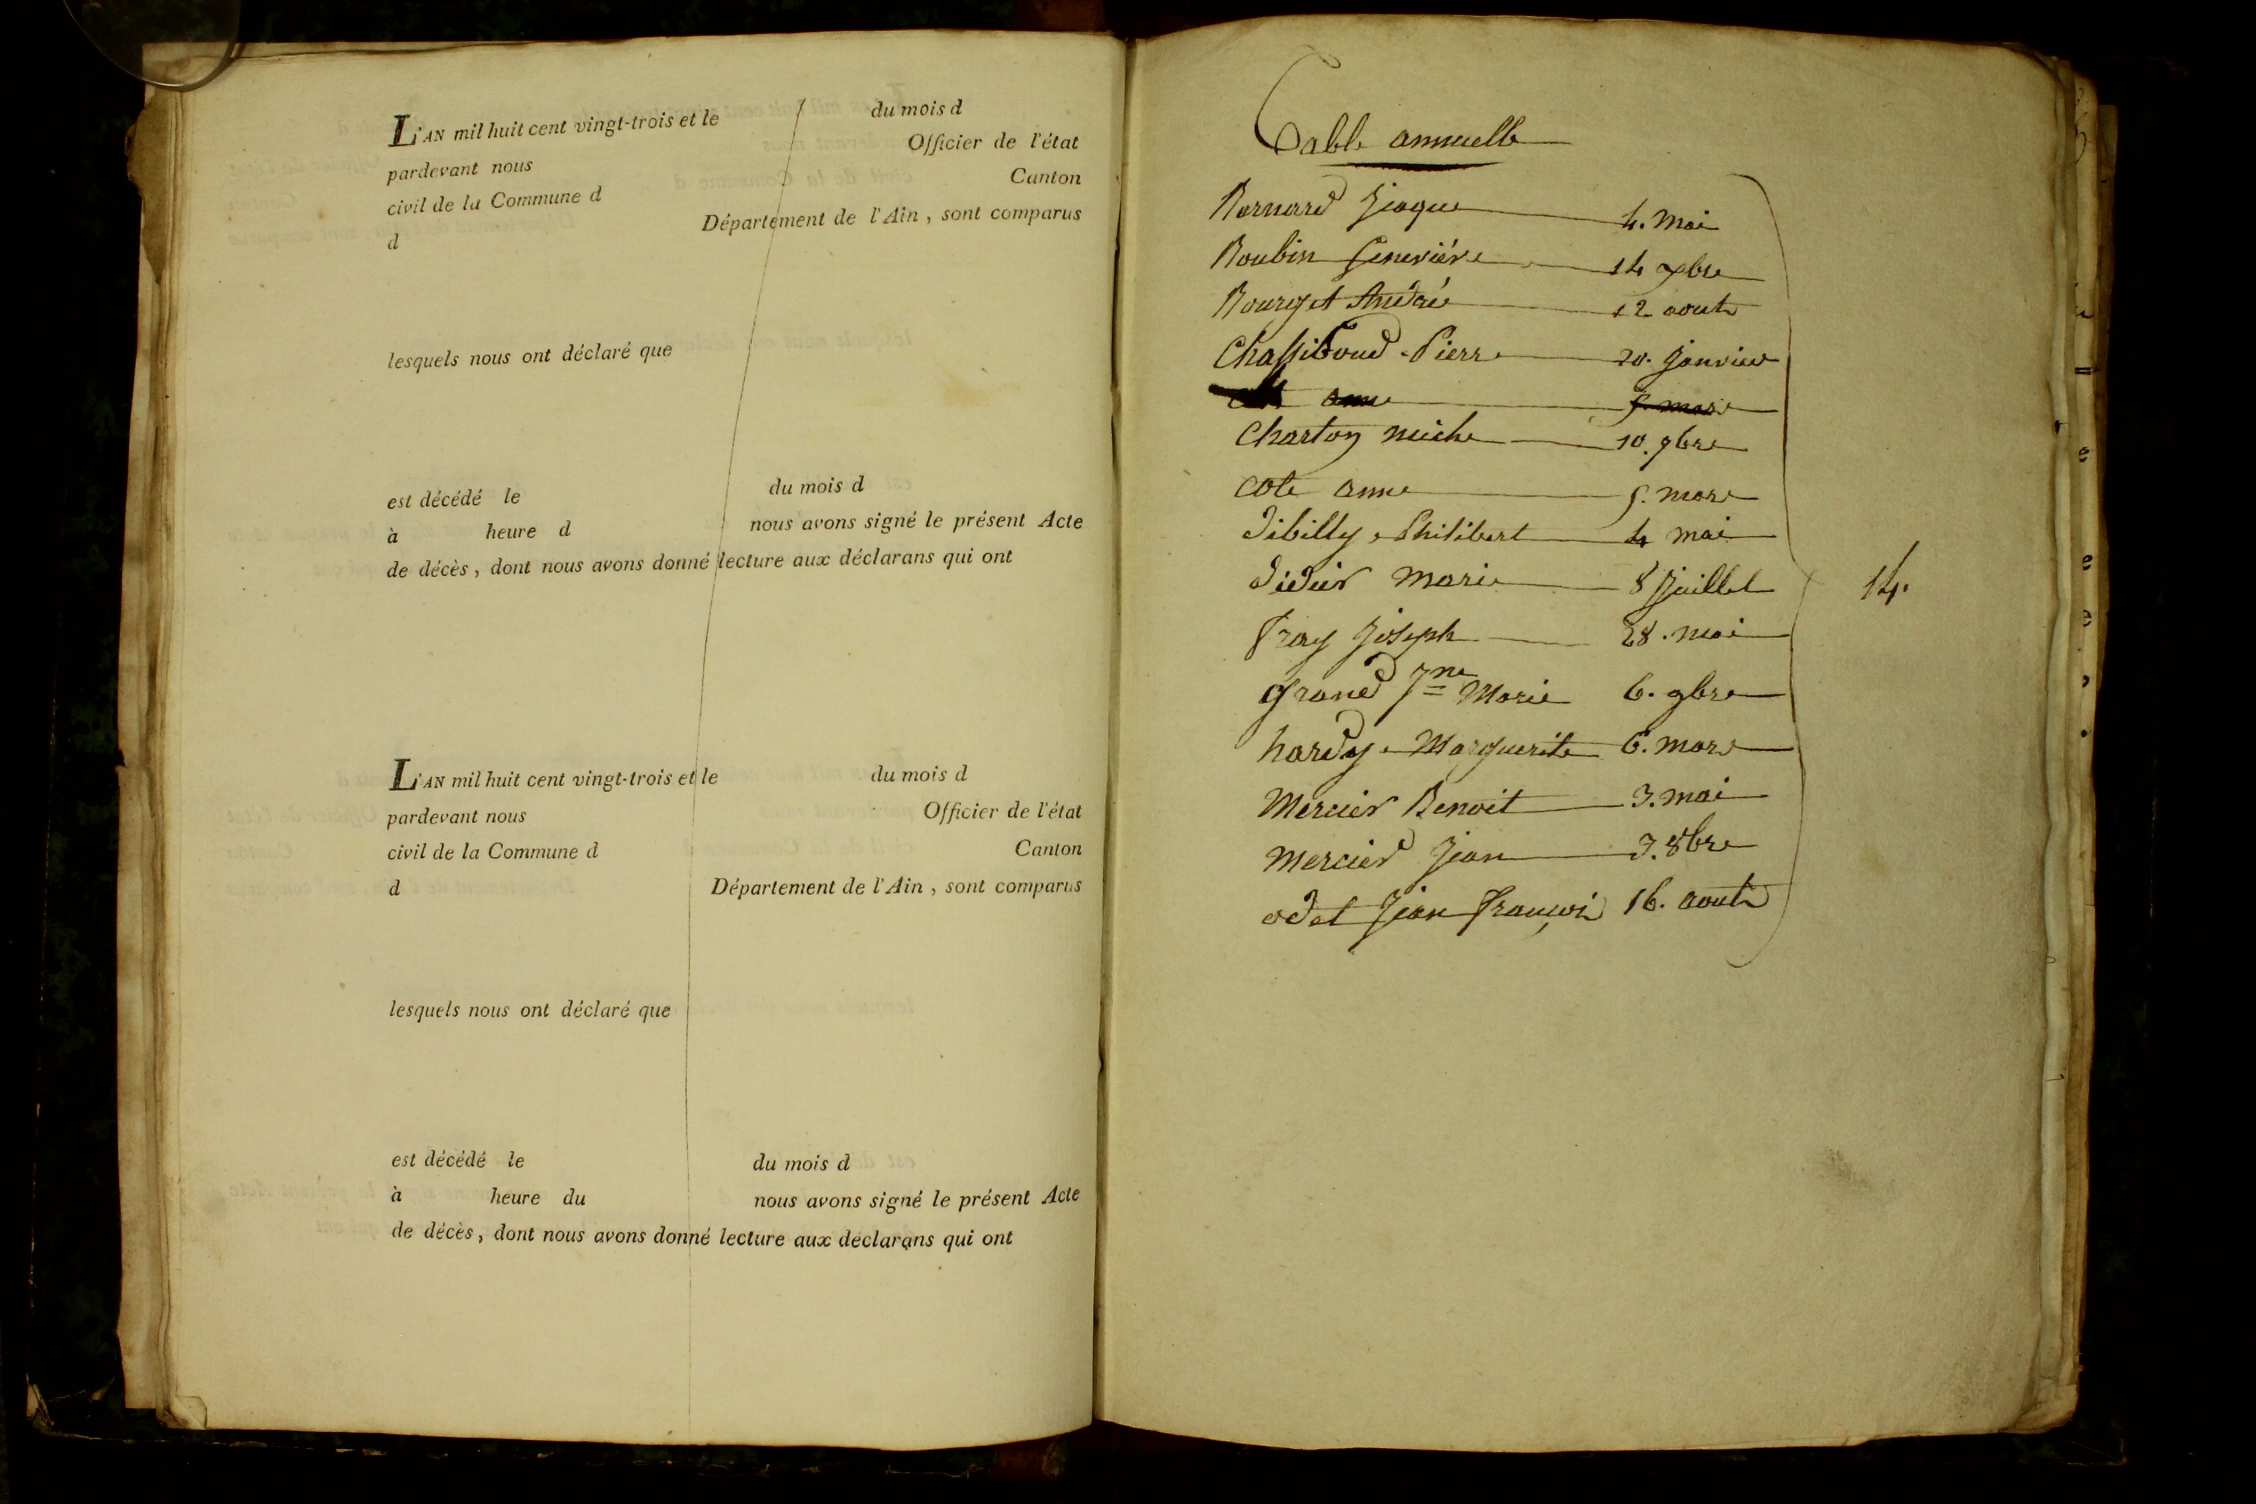 L'AN mil huit cent vingt-trois et le du mois d
pardevant nous Officier de l'état
civil de la Commune d Canton
d Département de l'Ain, sont comparus
lesquels nous ont déclaré que
est décédé le du mois d
à heure d nous avons signé le présent Acte
de décès, dont nous avons donné lecture aux déclarans qui ont
L'AN mil huit cent vingt-trois et le du mois d
pardevant nous Officier de l'état
civil de la Commune d Canton
d Département de l'Ain, sont comparus
lesquels nous ont déclaré que
est décédé le du mois d
à heure du nous avons signé le présent Acte
de décès, dont nous avons donné lecture aux déclarans qui ont
Table annuelle
Bernard Jaque 4. mai
Boubin Geneviéve 14 xbre
Bourget André 12 aout
Chassiboud Pierre 20. janvier
anne 5. mars
Charton miche 10. 9bre
cote anne 5. mars
Dibilly Philibert 4 mai
Didier marie 8 Juillet
fray Joseph 28. mai
grand Jne Marie 6. 9bre
hardy Marguerite 6. mars
Mercier Benoit 3. mai
mercier Jean 3. 8bre
odet Jean françoi 16. aout
14.